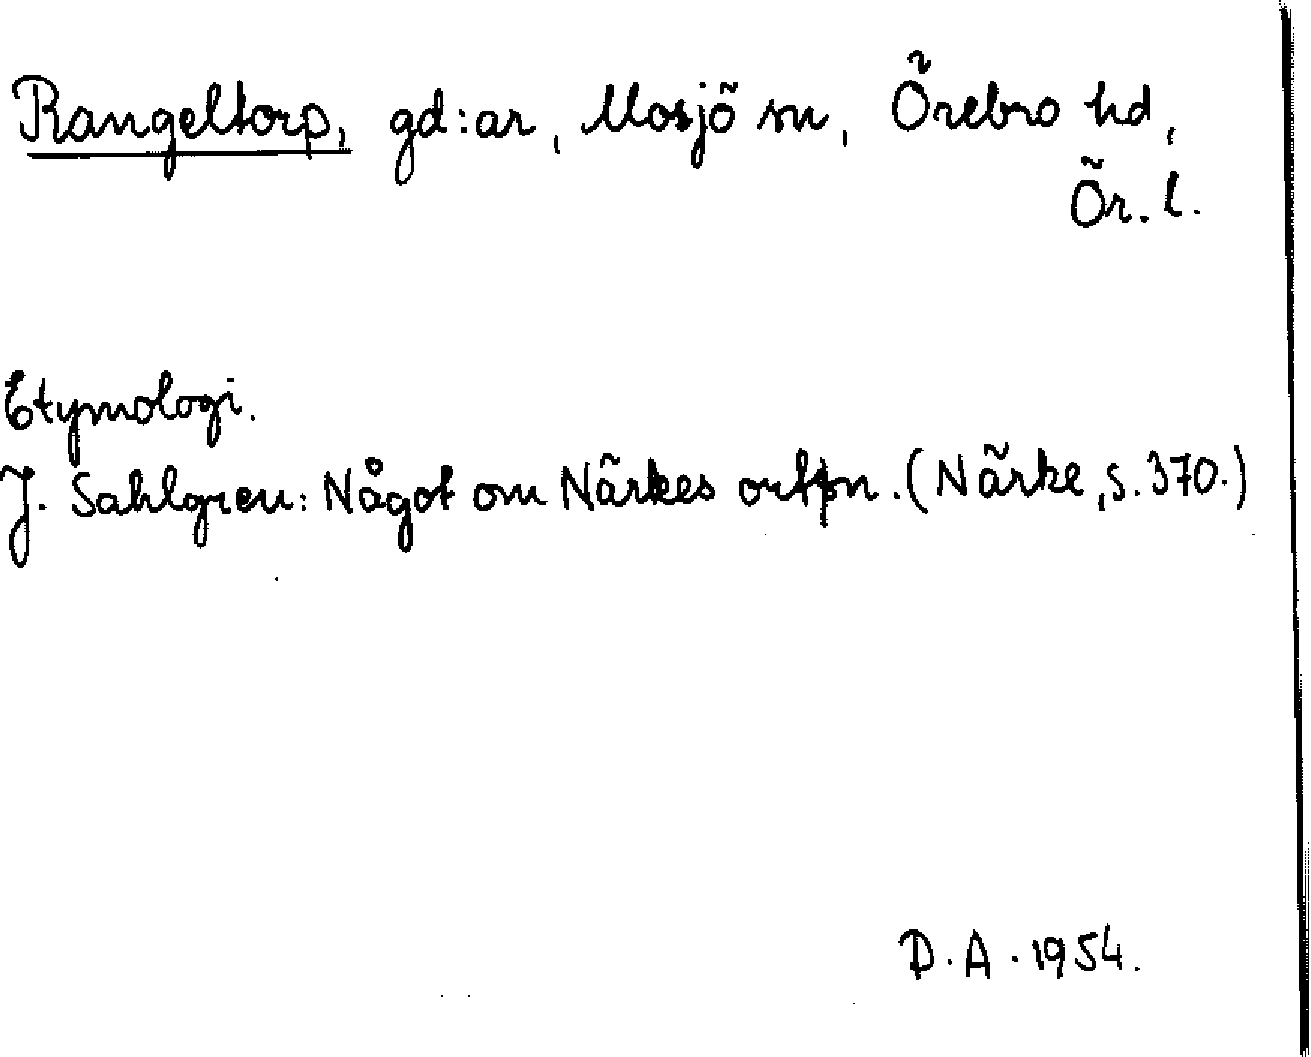 Rangeltorp, gd:ar, Mosjö sn, Örebro hd,
Ör. l.
Etymologi.
J. Sahlgren: Något om Närkes ortpn. (Närke, s. 370.)
D. A. 1954.